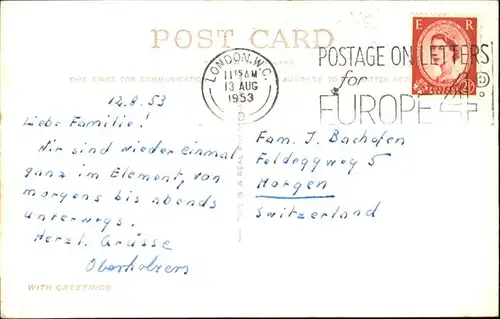 POST CARD
THIS SPACE FOR COMMUNICATION
LONDON.W.C.
11 15 AM
13 AUG
1953
POSTAGE ON LETTERS
for
EUROPE 4D.
E R
12.8.53
Liebe Familie!
Wir sind wieder einmal
ganz im Element, von
morgens bis abends
unterwegs.
Herzl. Grüsse
Oberholzers
Fam. J. Bachofen
Feldeggweg 5
Horgen
Switzerland
WITH GREETINGS